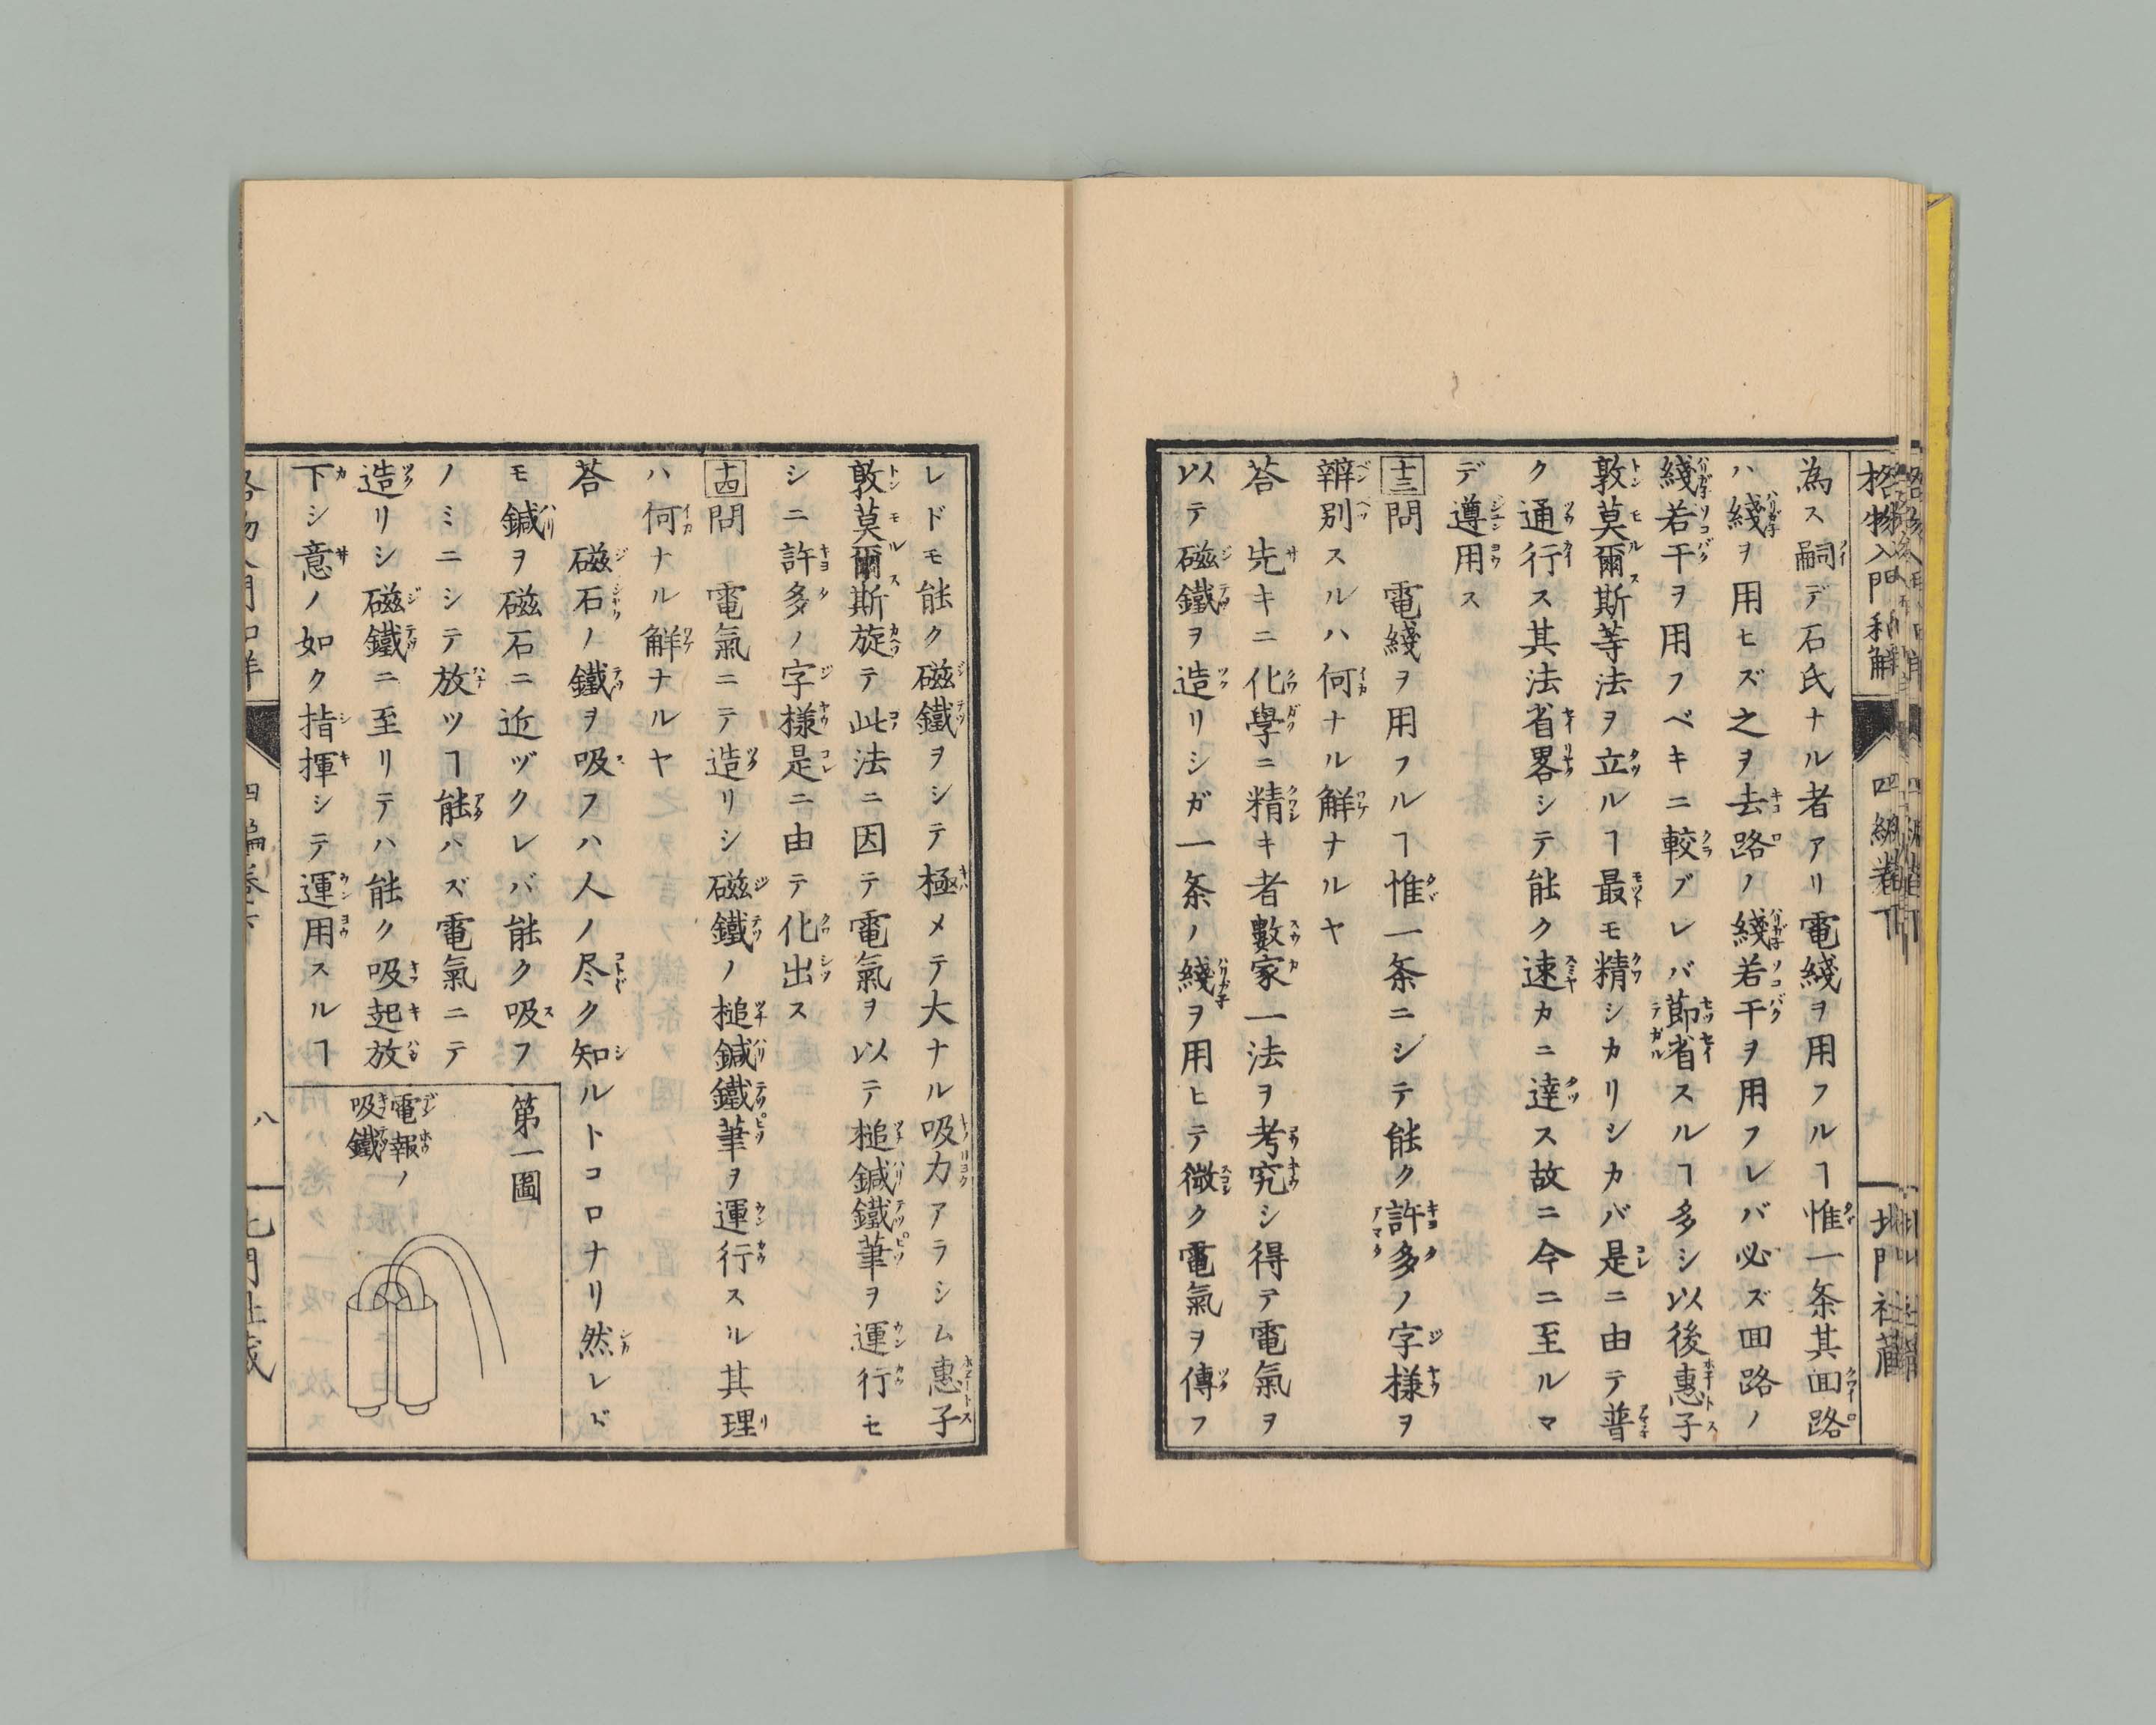 格物入門和解 四編巻下 北門社蔵
為ス嗣デ石氏ナル者アリ電綫ヲ用フルヿ惟一条其囬路
ハ綫ヲ用ヒズ之ヲ去路ノ綫若干ヲ用フレバ必ズ囬路ノ
綫若干ヲ用フベキニ較ブレバ節省スルヿ多シ以後惠子
敦莫爾斯等法ヲ立ルヿ最モ精シカリシカバ是ニ由テ普
ク通行ス其法省畧シテ能ク速カニ達ス故ニ今ニ至ルマ
デ遵用ス
十三問 電綫ヲ用フルヿ惟一条ニシテ能ク許多ノ字様ヲ
辨別スルハ何ナル解ナルヤ
荅 先キニ化學ニ精キ者數家一法ヲ考究シ得テ電氣ヲ
以テ磁鐵ヲ造リシガ一条ノ綫ヲ用ヒテ微ク電氣ヲ傳フ
レドモ能ク磁鐵ヲシテ極メテ大ナル吸力アラシム惠子
敦莫爾斯旋テ此法ニ因テ電氣ヲ以テ槌鍼鐵筆ヲ運行モ
シニ許多ノ字様是ニ由テ化出ス
十四問 電氣ニテ造リシ磁鐵ノ槌鍼鐵筆ヲ運行スル其理
ハ何ナル解ナルヤ
荅 磁石ノ鐵ヲ吸フハ人ノ尽ク知ルトコロナリ然レド
モ鍼ヲ磁石ニ近ヅクレバ能ク吸フ
ノミニシテ放ツヿ能ハズ電氣ニテ
造リシ磁鐵ニ至リテハ能ク吸起放
下シ意ノ如ク指揮シテ運用スルヿ
第一圖
電報ノ
吸鐵
四編巻下 八